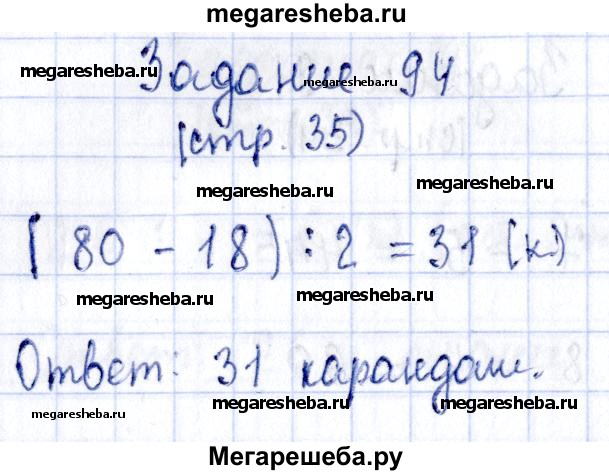 megaresheba.ru
Задание 94
megaresheba.ru megaresheba.ru
(стр. 35)
megaresheba.ru megaresheba.ru
(80 - 18) : 2 = 31 (к.)
megaresheba.ru megaresheba.ru
Ответ: 31 карандаш.
megaresheba.ru megaresheba.ru megaresheba.ru
Мегарешеба.ру